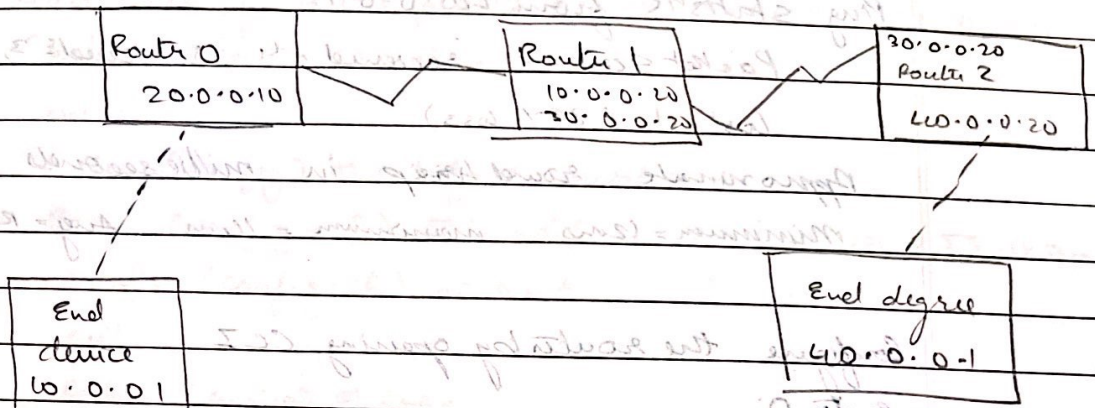 Router 0
20.0.0.10
Router 1
10.0.0.20
30.0.0.20
30.0.0.20
Router 2
40.0.0.20
End
device
10.0.0.1
End degree
40.0.0.1